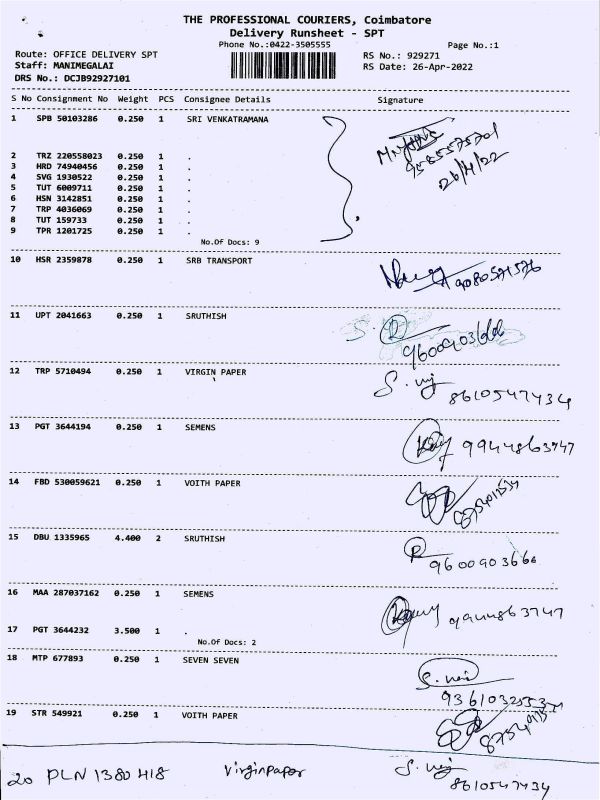 THE PROFESSIONAL COURIERS, Coimbatore
Delivery Runsheet - SPT
Phone No.:0422-3505555
Page No.:1
Route: OFFICE DELIVERY SPT
Staff: MANIMEGALAI
DRS No.: DCJB92927101
RS No.: 929271
RS Date: 26-Apr-2022
S No Consignment No Weight PCS Consignee Details Signature
1 SPB 50103286 0.250 1 SRI VENKATRAMANA
26/4/22
2 TRZ 220558023 0.250 1 .
3 HRD 74940456 0.250 1 .
4 SVG 1930522 0.250 1 .
5 TUT 6009711 0.250 1 .
6 HSN 3142851 0.250 1 .
7 TRP 4036069 0.250 1 .
8 TUT 159733 0.250 1 .
9 TPR 1201725 0.250 1 .
No.Of Docs: 9
10 HSR 2359878 0.250 1 SRB TRANSPORT
9080571576
11 UPT 2041663 0.250 1 SRUTHISH
9600903666
12 TRP 5710494 0.250 1 VIRGIN PAPER
8610547434
13 PGT 3644194 0.250 1 SEMENS
9944863747
14 FBD 530059621 0.250 1 VOITH PAPER
15 DBU 1335965 4.400 2 SRUTHISH
R
9600903666
16 MAA 287037162 0.250 1 SEMENS
9944863747
17 PGT 3644232 3.500 1 .
No.Of Docs: 2
18 MTP 677893 0.250 1 SEVEN SEVEN
19 STR 549921 0.250 1 VOITH PAPER
20 PLN 1380418 Virginpaper
8610547434